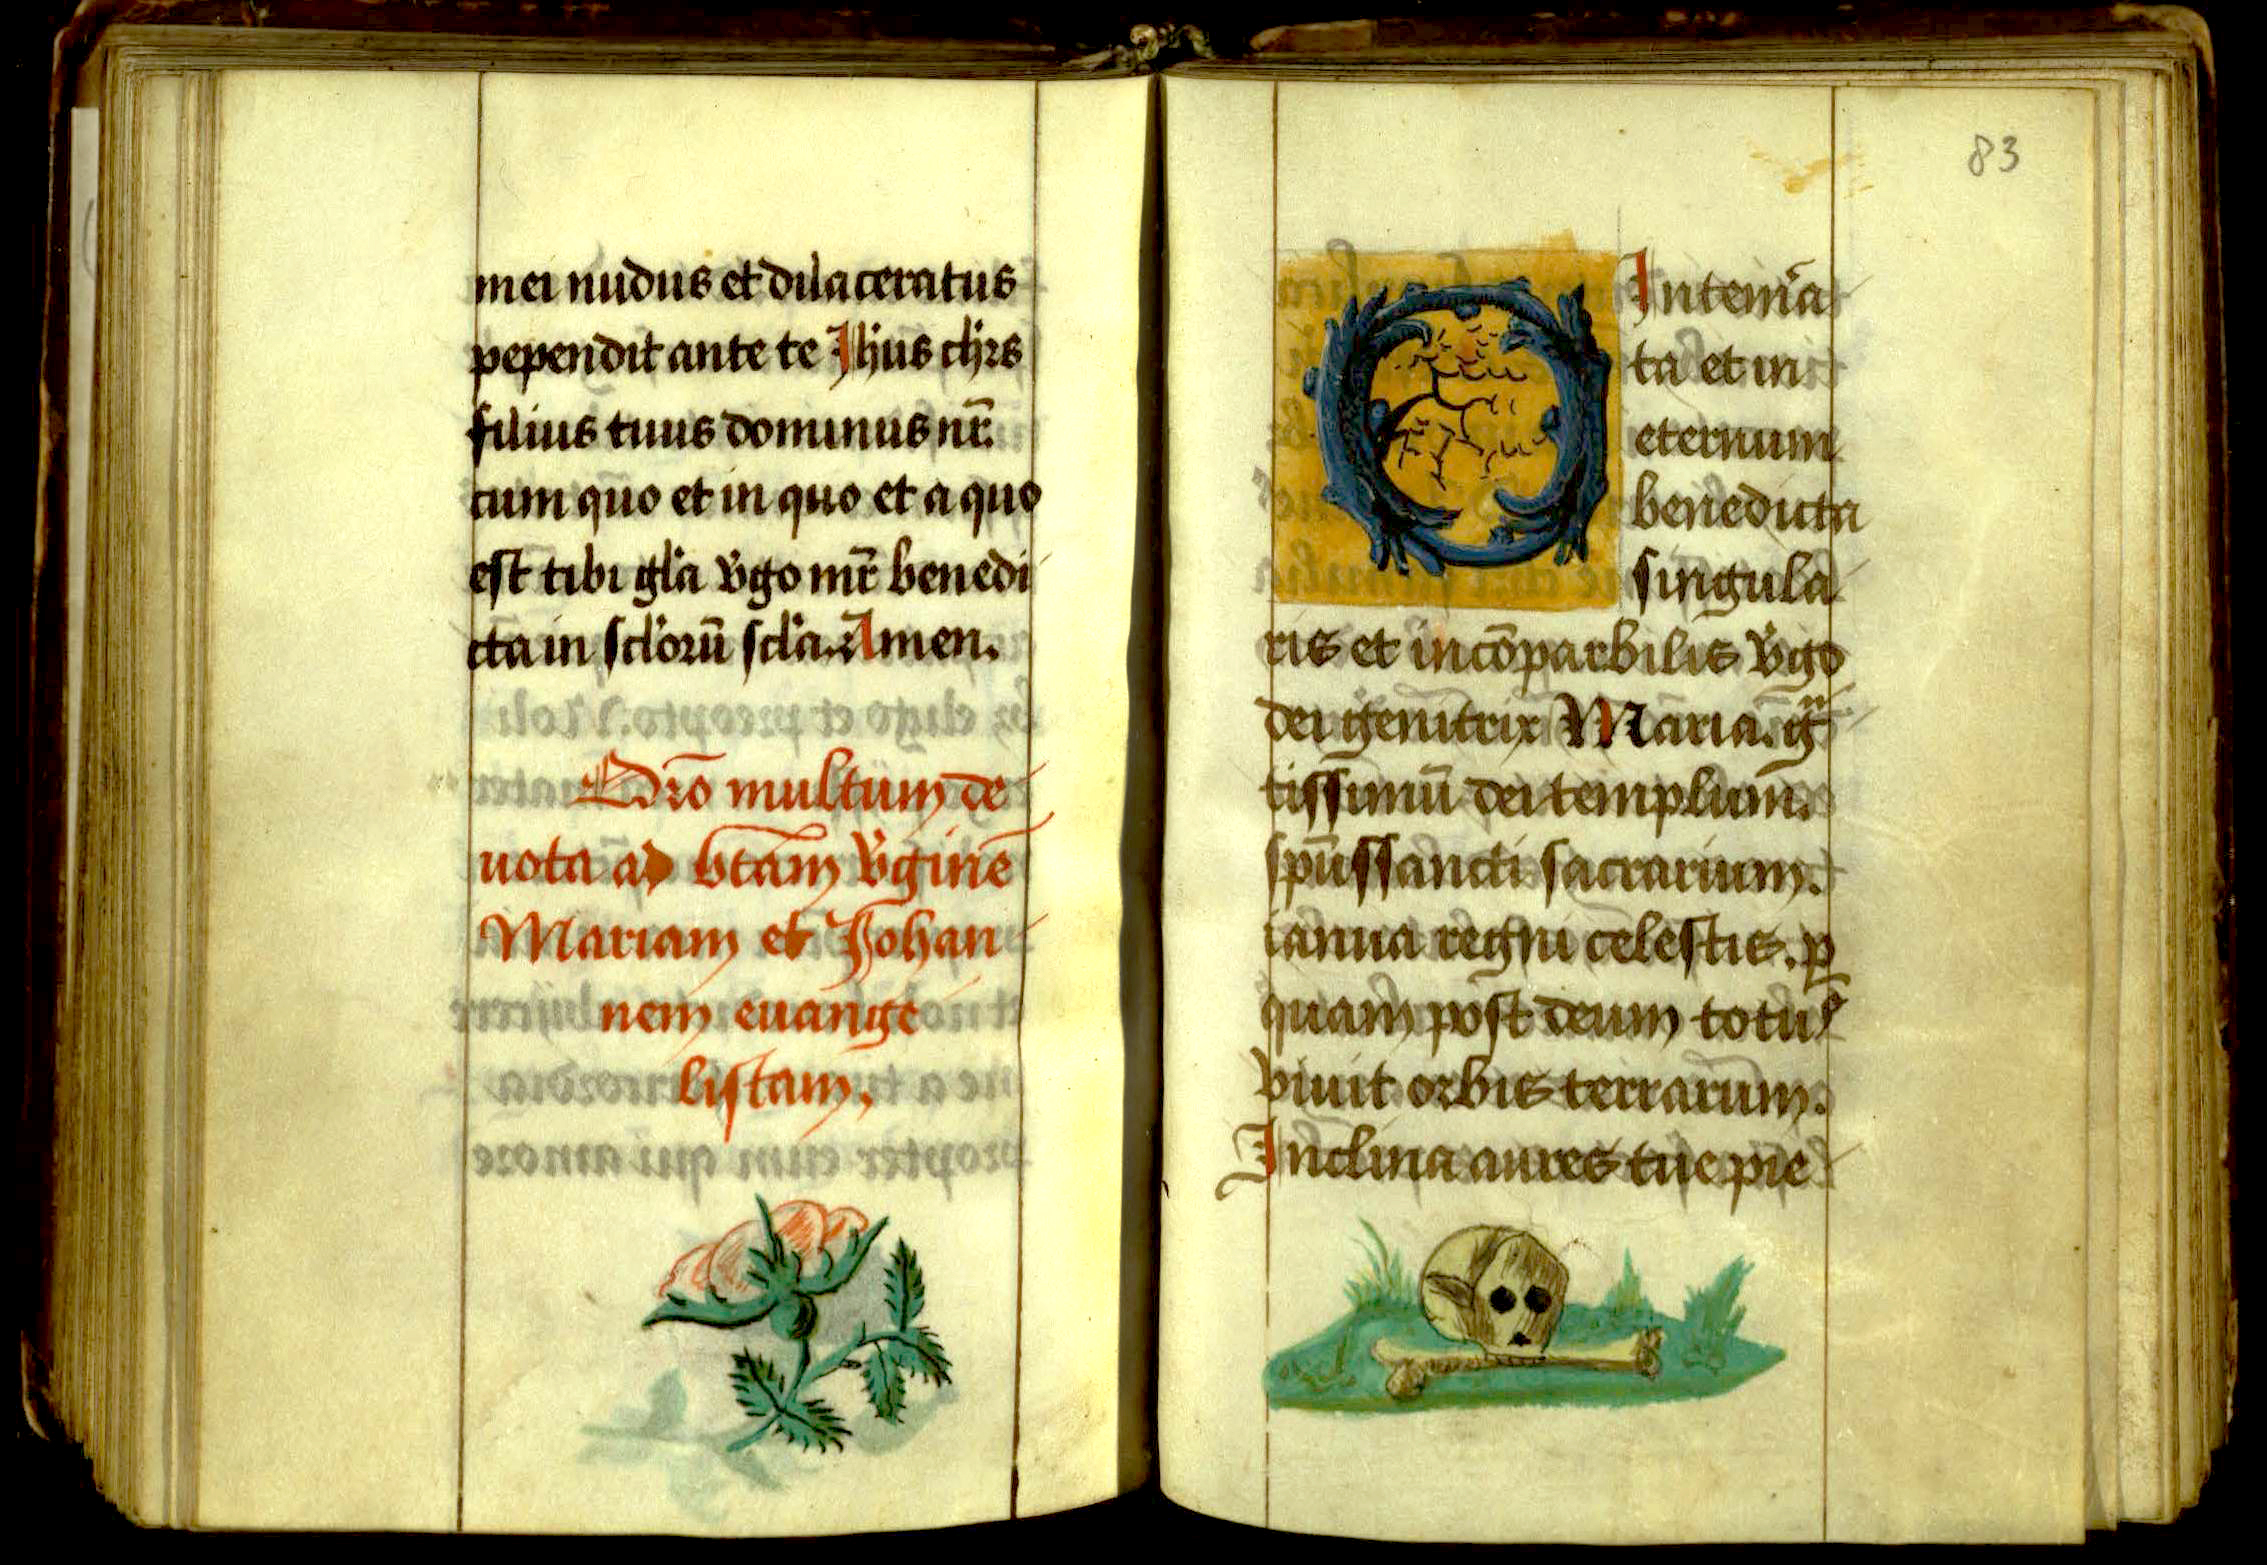 mei nudus et dilaceratus
pependit ante te Jhūs chrs
filius tuus dominus nr̄.
cum quo et in quo et a quo
est tibi gl̄a v̄go mr̄ benedi
cta in scl̄orū scl̄a. Amen.
Orō multum de
uota ad btām v̄ginē
Mariam et Johan
nem euange
listam.
83
O Intem̄a
ta et in
eternum
benedicta
singula
ris et incōparbilis v̄go
dei genitrix Maria. ḡ
tissimū dei templum.
spūssancti sacrarium.
ianua regni celestis. p̱
quam post deum totus
viuit orbis terrarum.
Inclina aures tue pie